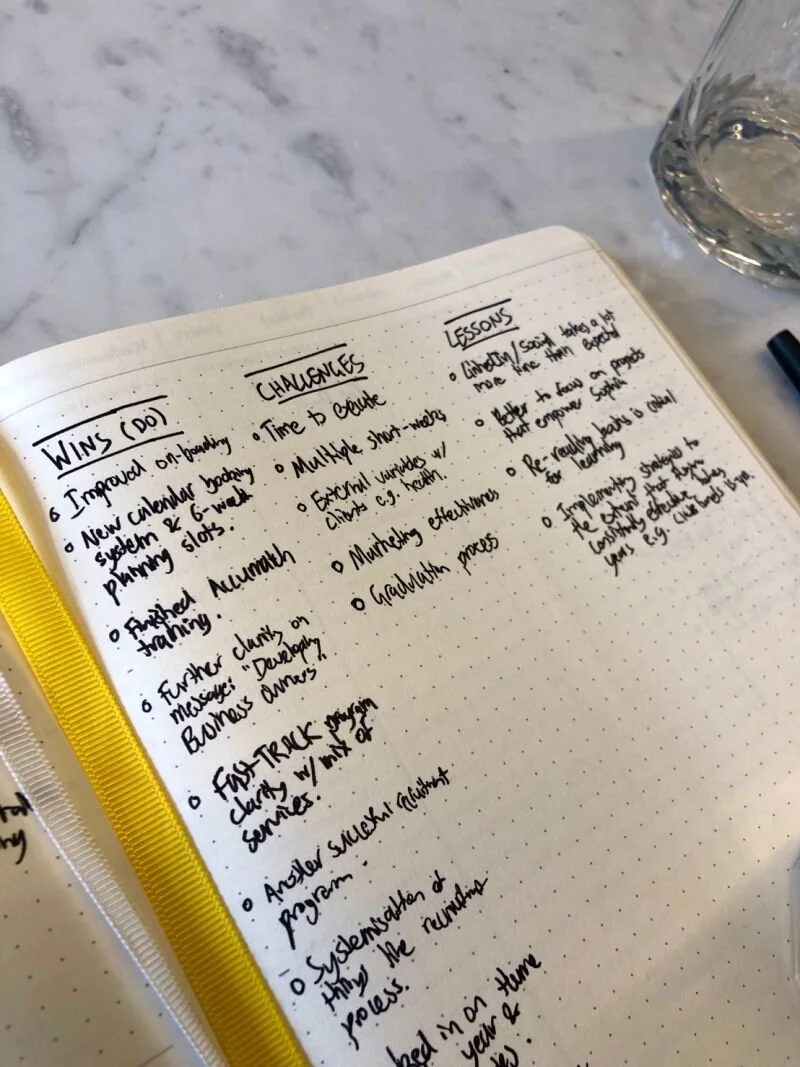 WINS (DO)
Improved on-boarding
New calendar booking
system & 6-week
planning slots.
Finished Accumatch
training.
Further clarity on
message: "Developing
Business Owners".
FAST-TRACK program
clarity w/ mix of
services.
Another successful recruitment
program.
Systemisation of
things like recruiting
process.
in on theme
year &
CHALLENGES
Time to execute
Multiple short-weeks
External variables w/
clients e.g. health.
Marketing effectiveness
Graduation process
LESSONS
LinkedIn/Social takes a lot
more time than expected
Better to focus on projects
that empower Sophia
Re-reading books is critical
for learning
Implementing strategies to
the extent that they
constitute effective takes
years e.g.